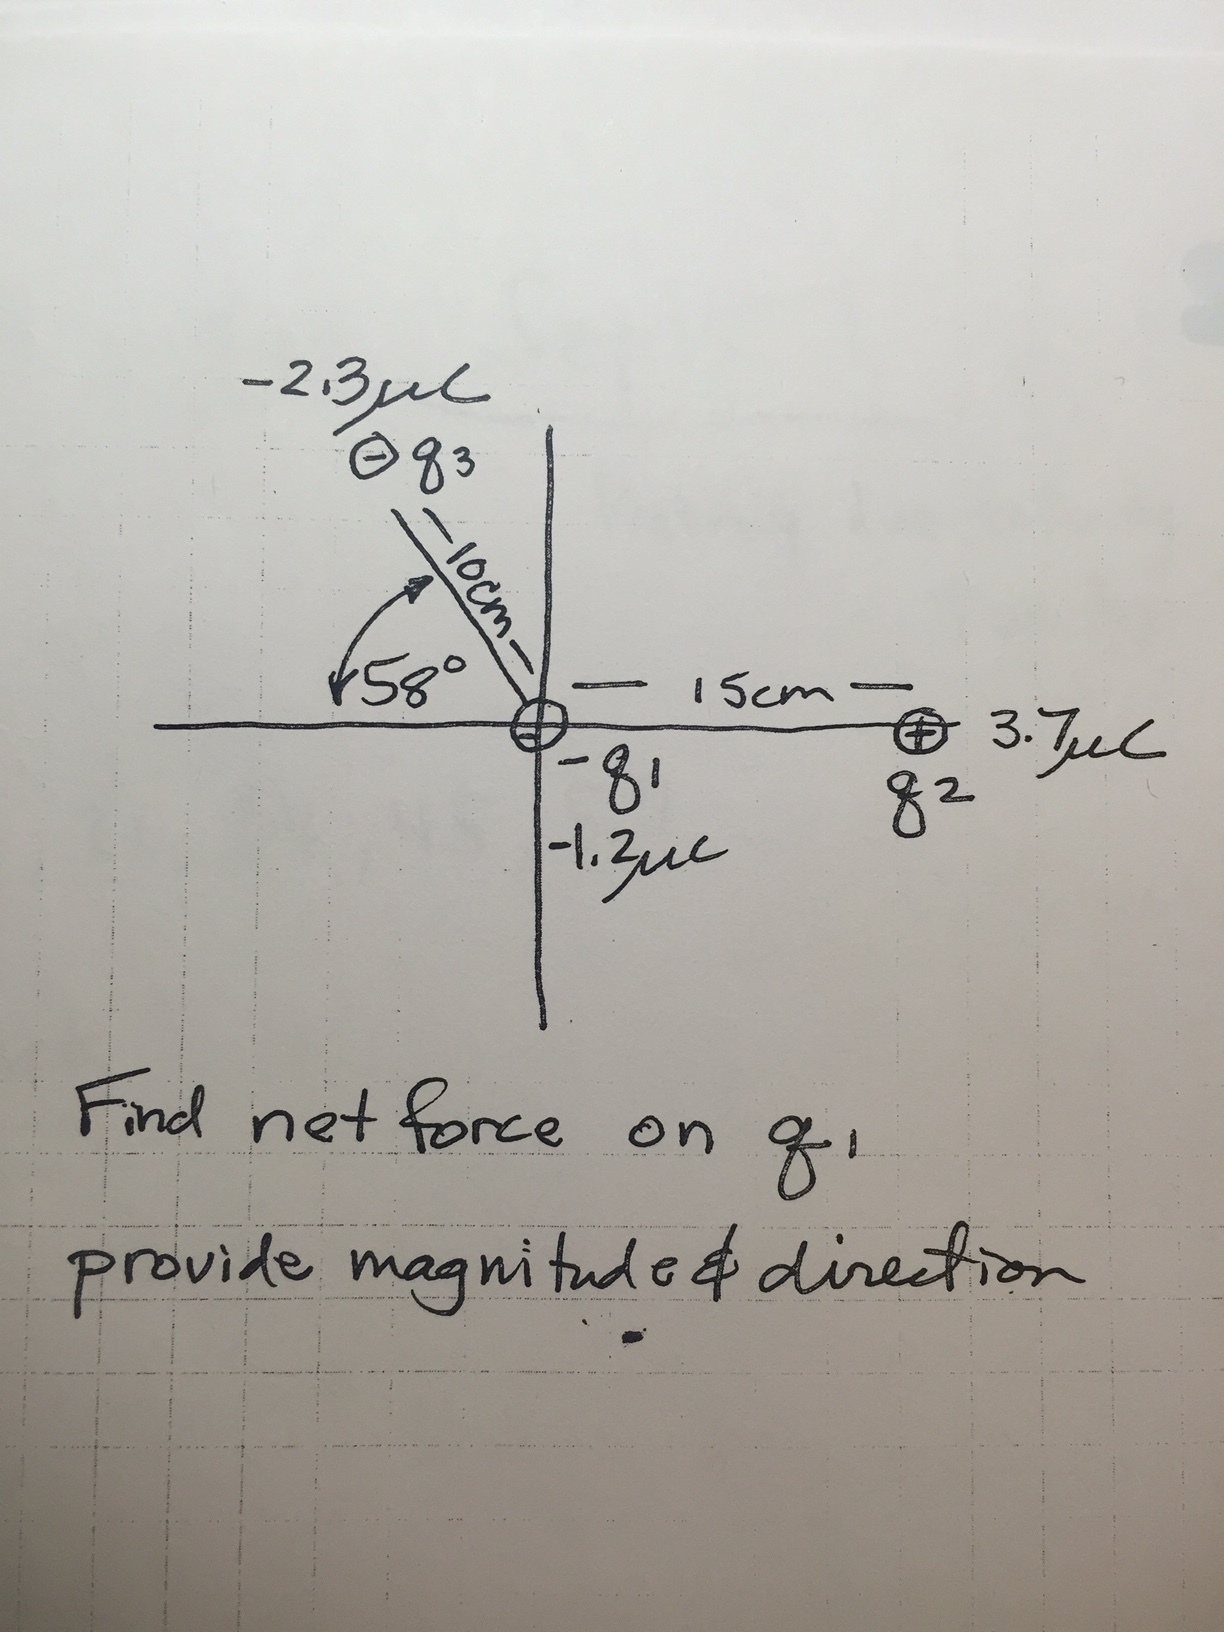 -2.3μC
⊖ q3
-10cm-
58°
— 15cm —
⊕ 3.7μC
q2
- q1
-1.2μC
Find net force on q1
provide magnitude & direction
.